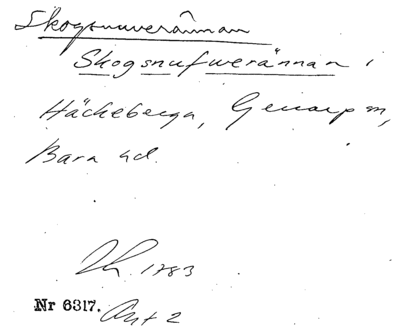 Skogsnuverännan
Skogsnufwerännan i
Häckeberga, Genarp sn,
Bara hd.
1783
Nr 6317.